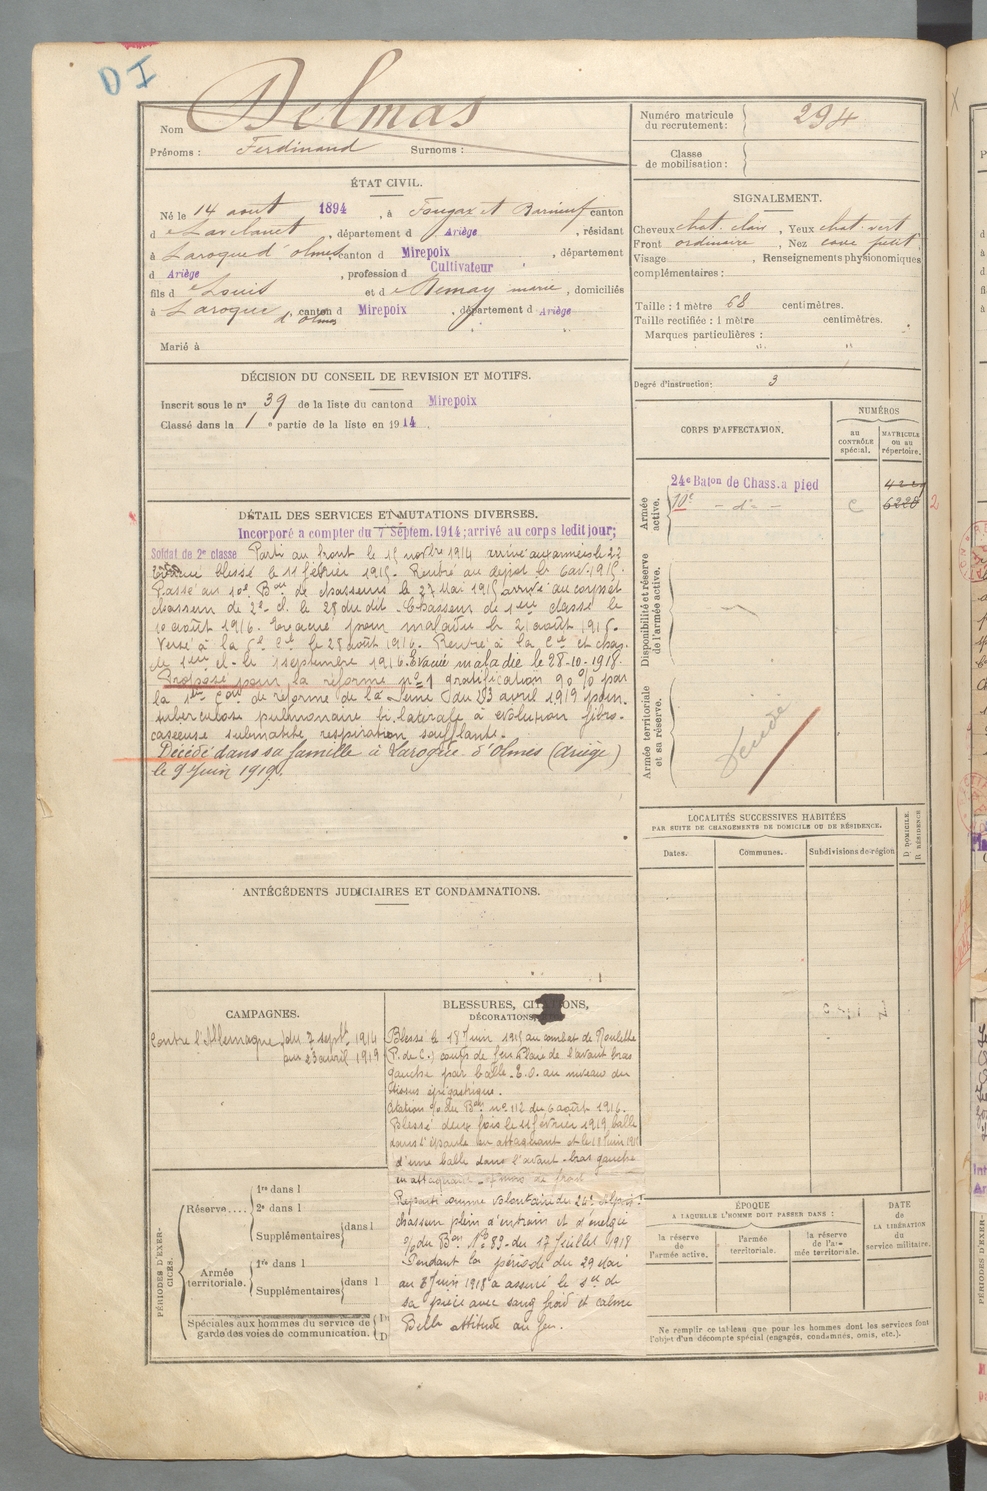 DI
Nom Delmas
Prénoms : Ferdinand Surnoms :
Numéro matricule du recrutement : 294
Classe de mobilisation :
ÉTAT CIVIL.
Né le 14 août 1894, à Fougax et Barrineuf canton
d e Lavelanet, département d Ariège, résidant
à Laroque d'olmes canton d Mirepoix, département
d Ariège, profession d Cultivateur
fils d e Louis et d e Remay marie, domiciliés
à Laroque d'olmes, canton d Mirepoix, département d Ariège
Marié à
SIGNALEMENT.
Cheveux chat. clair, Yeux chat. vert
Front ordinaire, Nez cave petit
Visage , Renseignements physionomiques
complémentaires :
Taille : 1 mètre 68 centimètres.
Taille rectifiée : 1 mètre centimètres.
Marques particulières :
" "
Degré d'instruction : 3
DÉCISION DU CONSEIL DE REVISION ET MOTIFS.
Inscrit sous le n° 39 de la liste du canton d Mirepoix
Classé dans la 1 e partie de la liste en 1914
DÉTAIL DES SERVICES ET MUTATIONS DIVERSES.
Incorporé a compter du 7 Septem. 1914; arrivé au corps ledit jour;
Soldat de 2e classe Parti au front le 15 novbre 1914 arrivé aux armées le 23
Evacué blessé le 11 février 1915. Rentré au dépôt le 6 avr. 1915.
Passé au 10e Bon de chasseurs le 27 Mai 1915 arrivé au corps et
chasseur de 2e cl. le 28 du dit. Chasseur de 1ère classe le
10 août 1916. Evacué pour maladie le 21 août 1916.
Versé à la 5e Cie le 28 août 1916. Rentré à la Cie et chas.
de 1ère cl. le 1 septembre 1916. Evacué maladie le 28-10-1918.
Proposé pour la réforme n° 1 gratification 90 % par
la 1ère Con de réforme de la Seine du 23 avril 1919 pour
tuberculose pulmonaire bi latérale à évolution fibro-
caséeuse submatité, respiration soufflante.
Décédé dans sa famille à Laroque d'Olmes (Ariège)
le 9 Juin 1919.
CORPS D'AFFECTATION.
NUMÉROS
au CONTRÔLE spécial.
MATRICULE ou au répertoire.
Armée active.
24e Baton de Chass. a pied
10e - d° - C 6228 2
Disponibilité et réserve de l'armée active.
Armée territoriale et sa réserve.
Décédé
LOCALITÉS SUCCESSIVES HABITÉES
PAR SUITE DE CHANGEMENTS DE DOMICILE OU DE RÉSIDENCE.
Dates. Communes. Subdivisions de région D DOMICILE. R RÉSIDENCE
ANTÉCÉDENTS JUDICIAIRES ET CONDAMNATIONS.
CAMPAGNES.
Contre l'Allemagne du 7 septbre 1914
au 23 avril 1919
BLESSURES, CITATIONS,
DÉCORATIONS,
Blessé le 18 Juin 1915 au combat de Noulette
(P. de C.) coups de feu Plaie de l'avant bras
gauche par balle. E.O. au niveau du
épigastrique.
Citation o/o du Bon n° 112 du 6 août 1916.
Blessé deux fois le 11 février 1919, balle
dans l'épaule en attaquant et le 18 Juin 1915
d'une balle dans l'avant-bras gauche
en attaquant. mois de front
Reparti comme volontaire du 24e Alpin
chasseur plein d'entrain et d'énergie
o/o du Bon No 89 du 17 Juillet 1918
Pendant la période du 29 Mai
au 8 Juin 1918 a assuré le de
sa pièce avec sang froid et calme
Belle attitude au feu.
PÉRIODES D'EXERCICES.
Réserve....
1re dans l
2e dans l
Supplémentaires dans l
Armée territoriale.
1re dans l
Supplémentaires dans l
Spéciales aux hommes du service de
garde des voies de communication.
ÉPOQUE
A LAQUELLE L'HOMME DOIT PASSER DANS :
la réserve de l'armée active.
l'armée territoriale.
la réserve de l'armée territoriale.
DATE de LA LIBÉRATION du service militaire.
Ne remplir ce tableau que pour les hommes dont les services font
l'objet d'un décompte spécial (engagés, condamnés, omis, etc.).